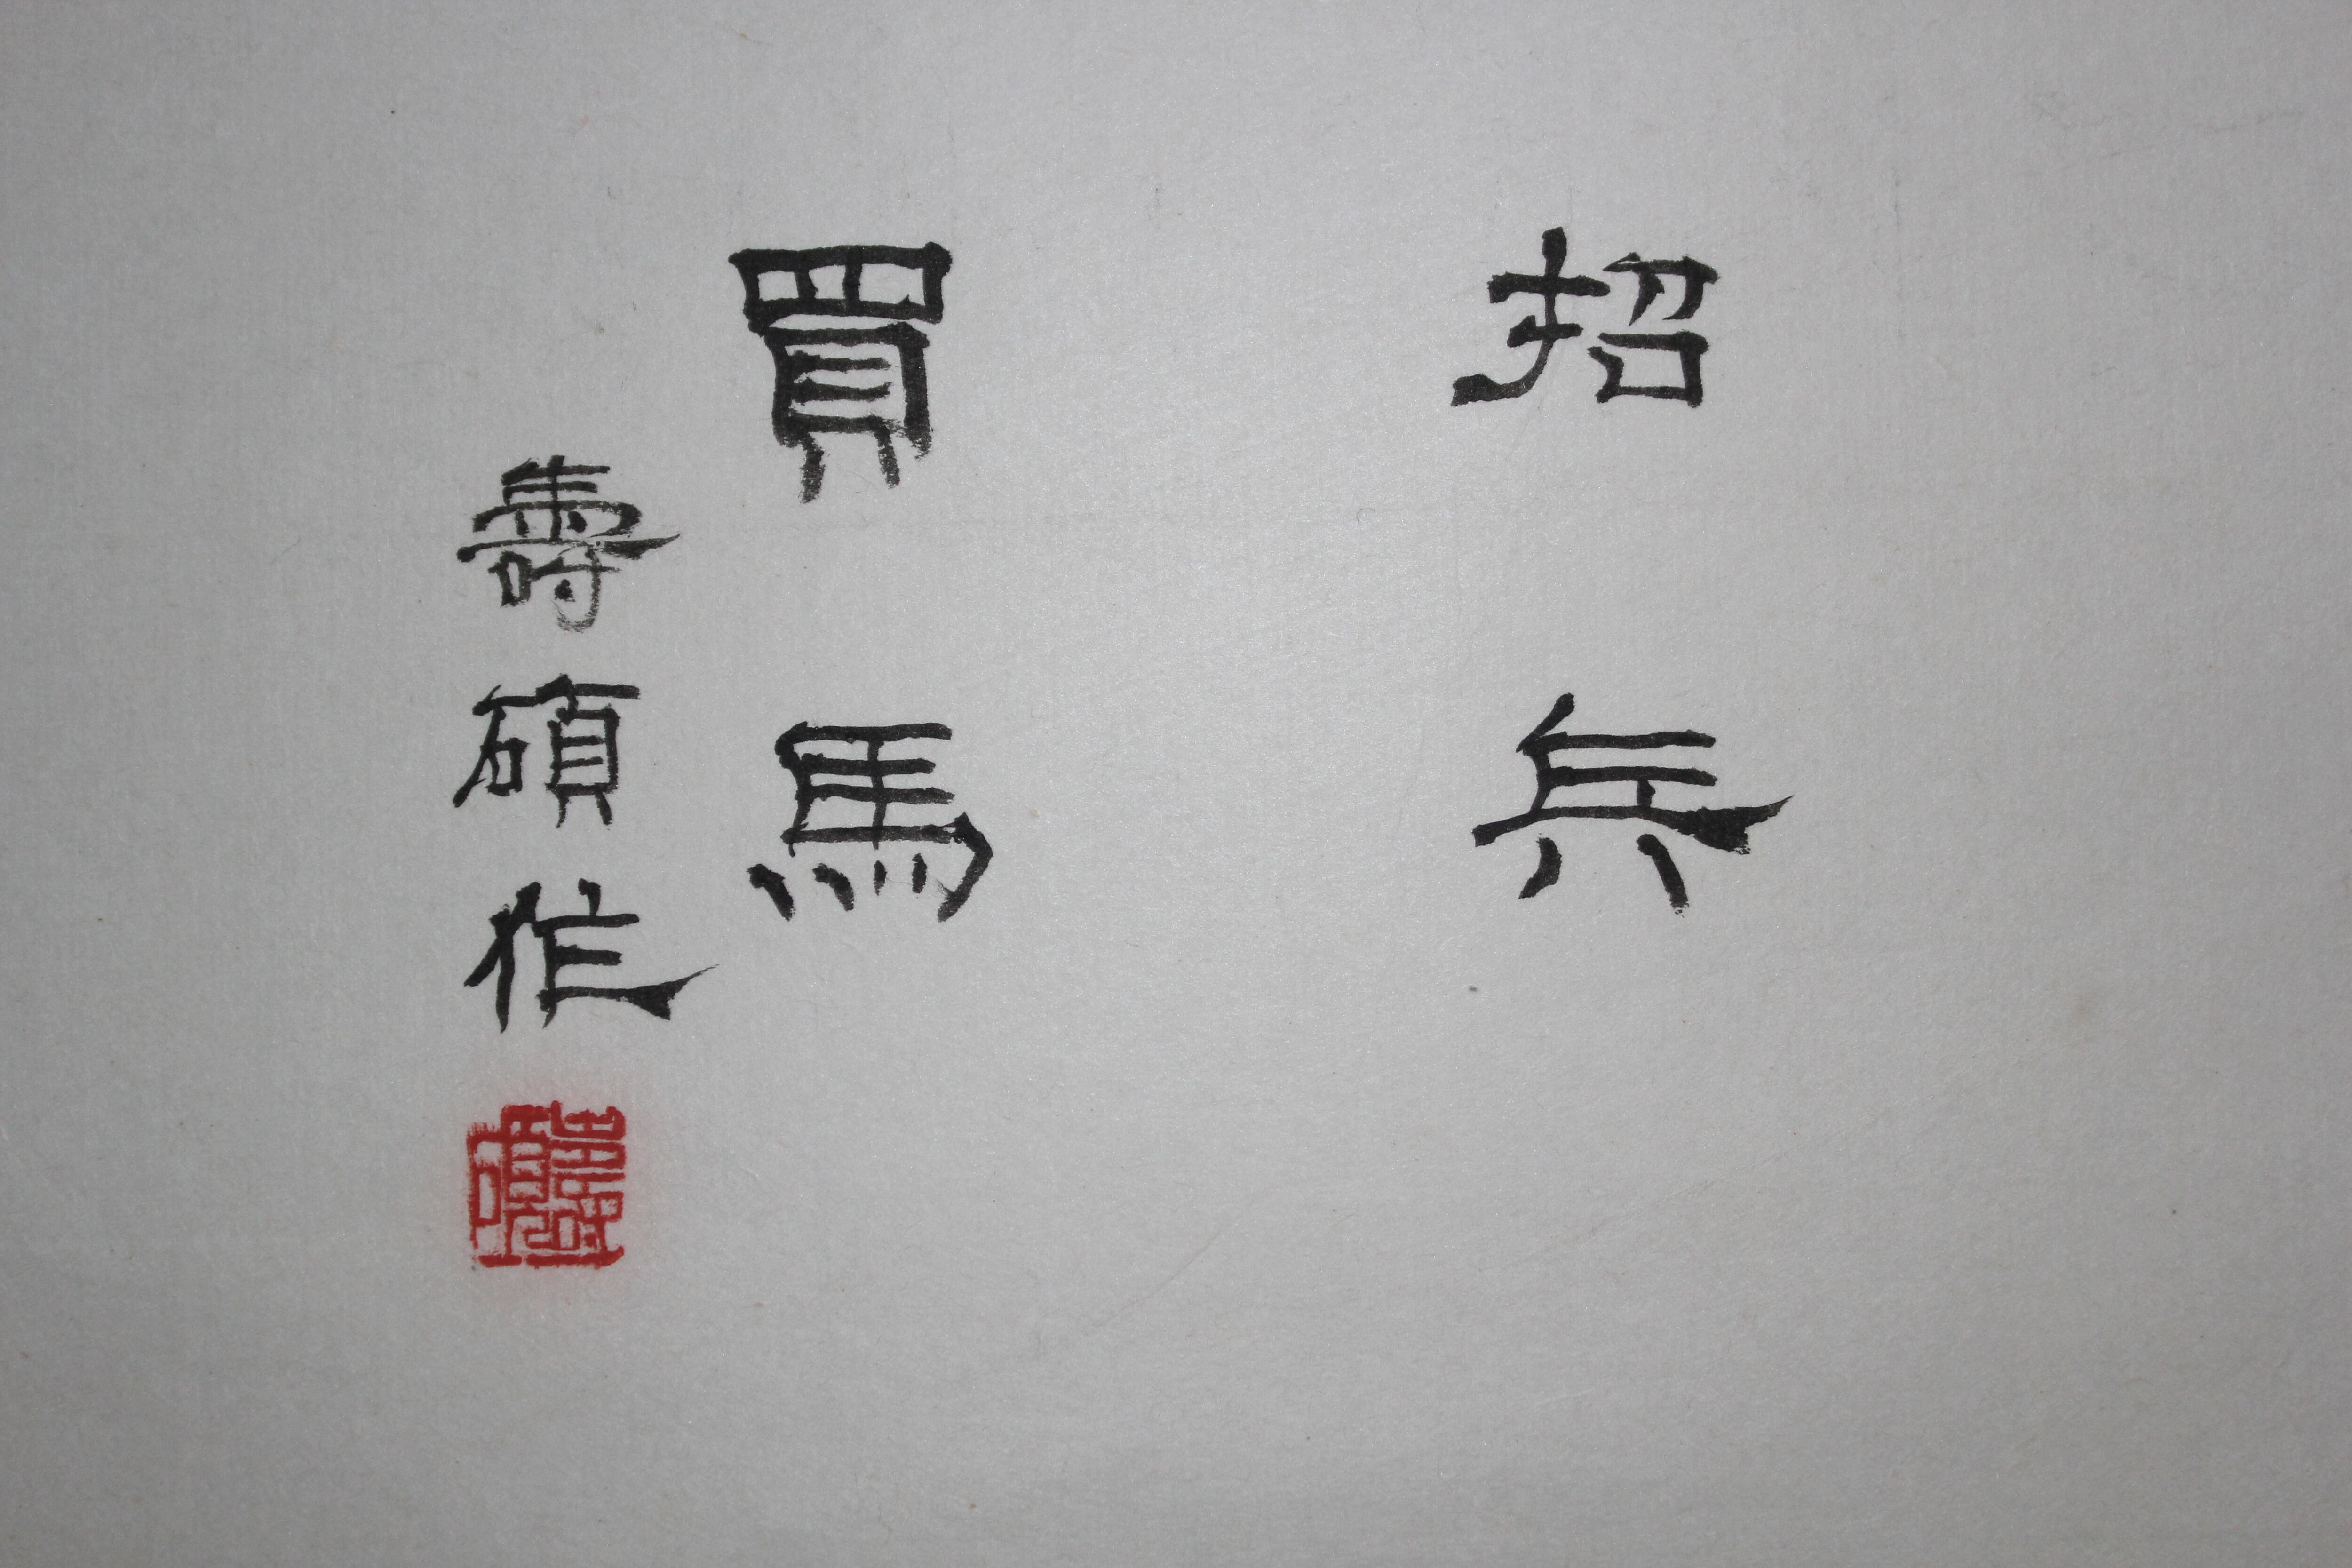 招兵
買馬
壽碩作